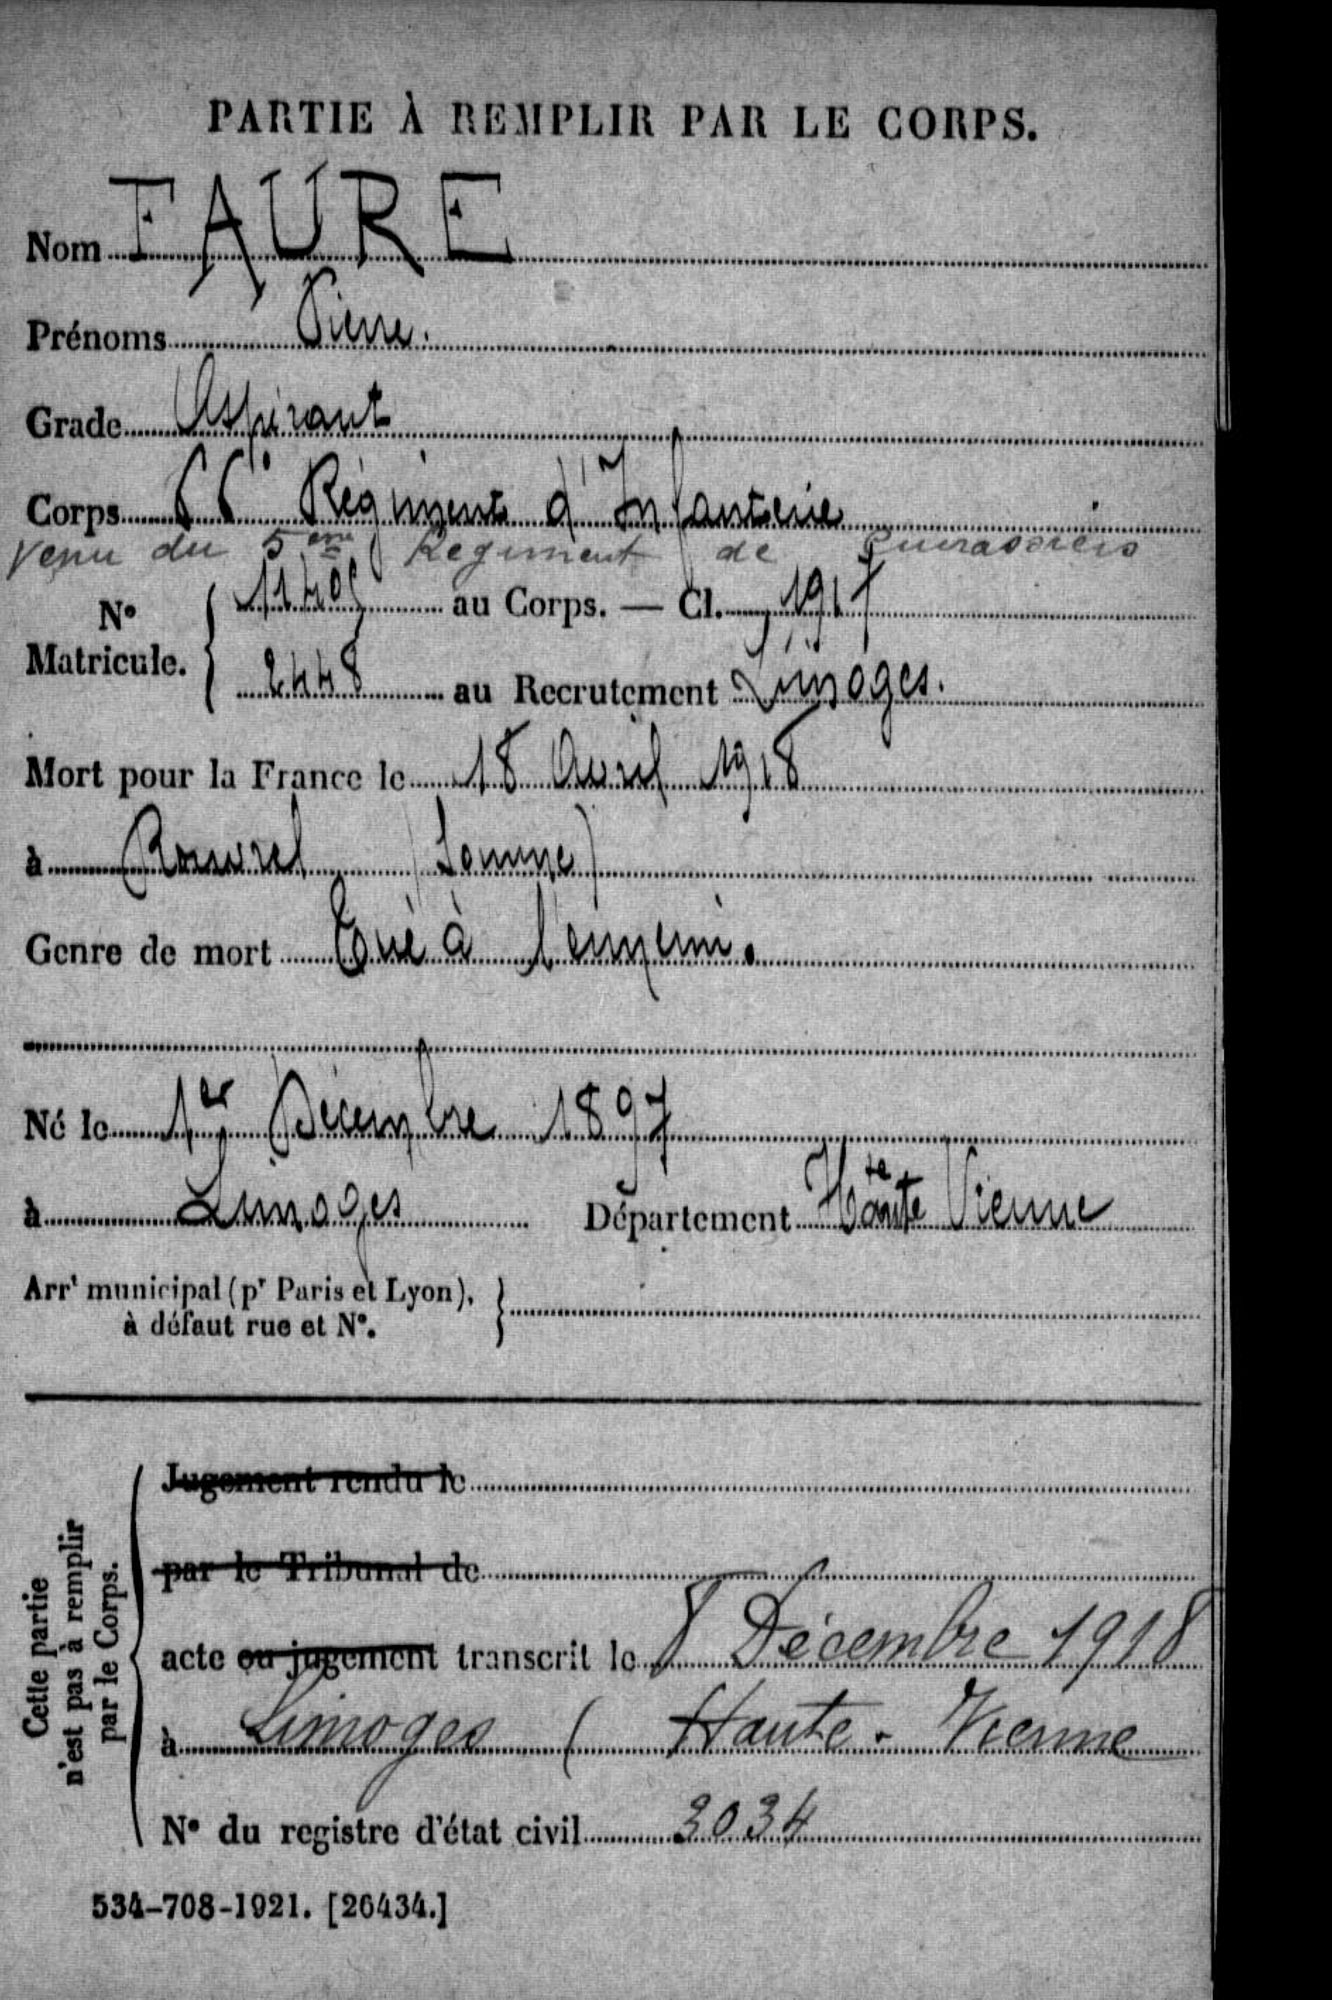 PARTIE À REMPLIR PAR LE CORPS.
Nom FAURE
Prénoms Pierre.
Grade Aspirant
Corps 66e Régiment d'Infanterie
Venu du 5ème Régiment de Cuirassiers
No Matricule. { 11405 au Corps. — Cl. 1917
2448 au Recrutement Limoges.
Mort pour la France le 18 Avril 1918
à Rouvrel (Somme)
Genre de mort Tué à l'ennemi.
Né le 1er Décembre 1897
à Limoges Département Hte Vienne
Arrt municipal (pr Paris et Lyon), à défaut rue et No. }
Cette partie n'est pas à remplir par le Corps.
Jugement rendu le
par le Tribunal de
acte ou jugement transcrit le 8 Décembre 1918
à Limoges ( Haute-Vienne
No du registre d'état civil 3034
534-708-1921. [26434.]